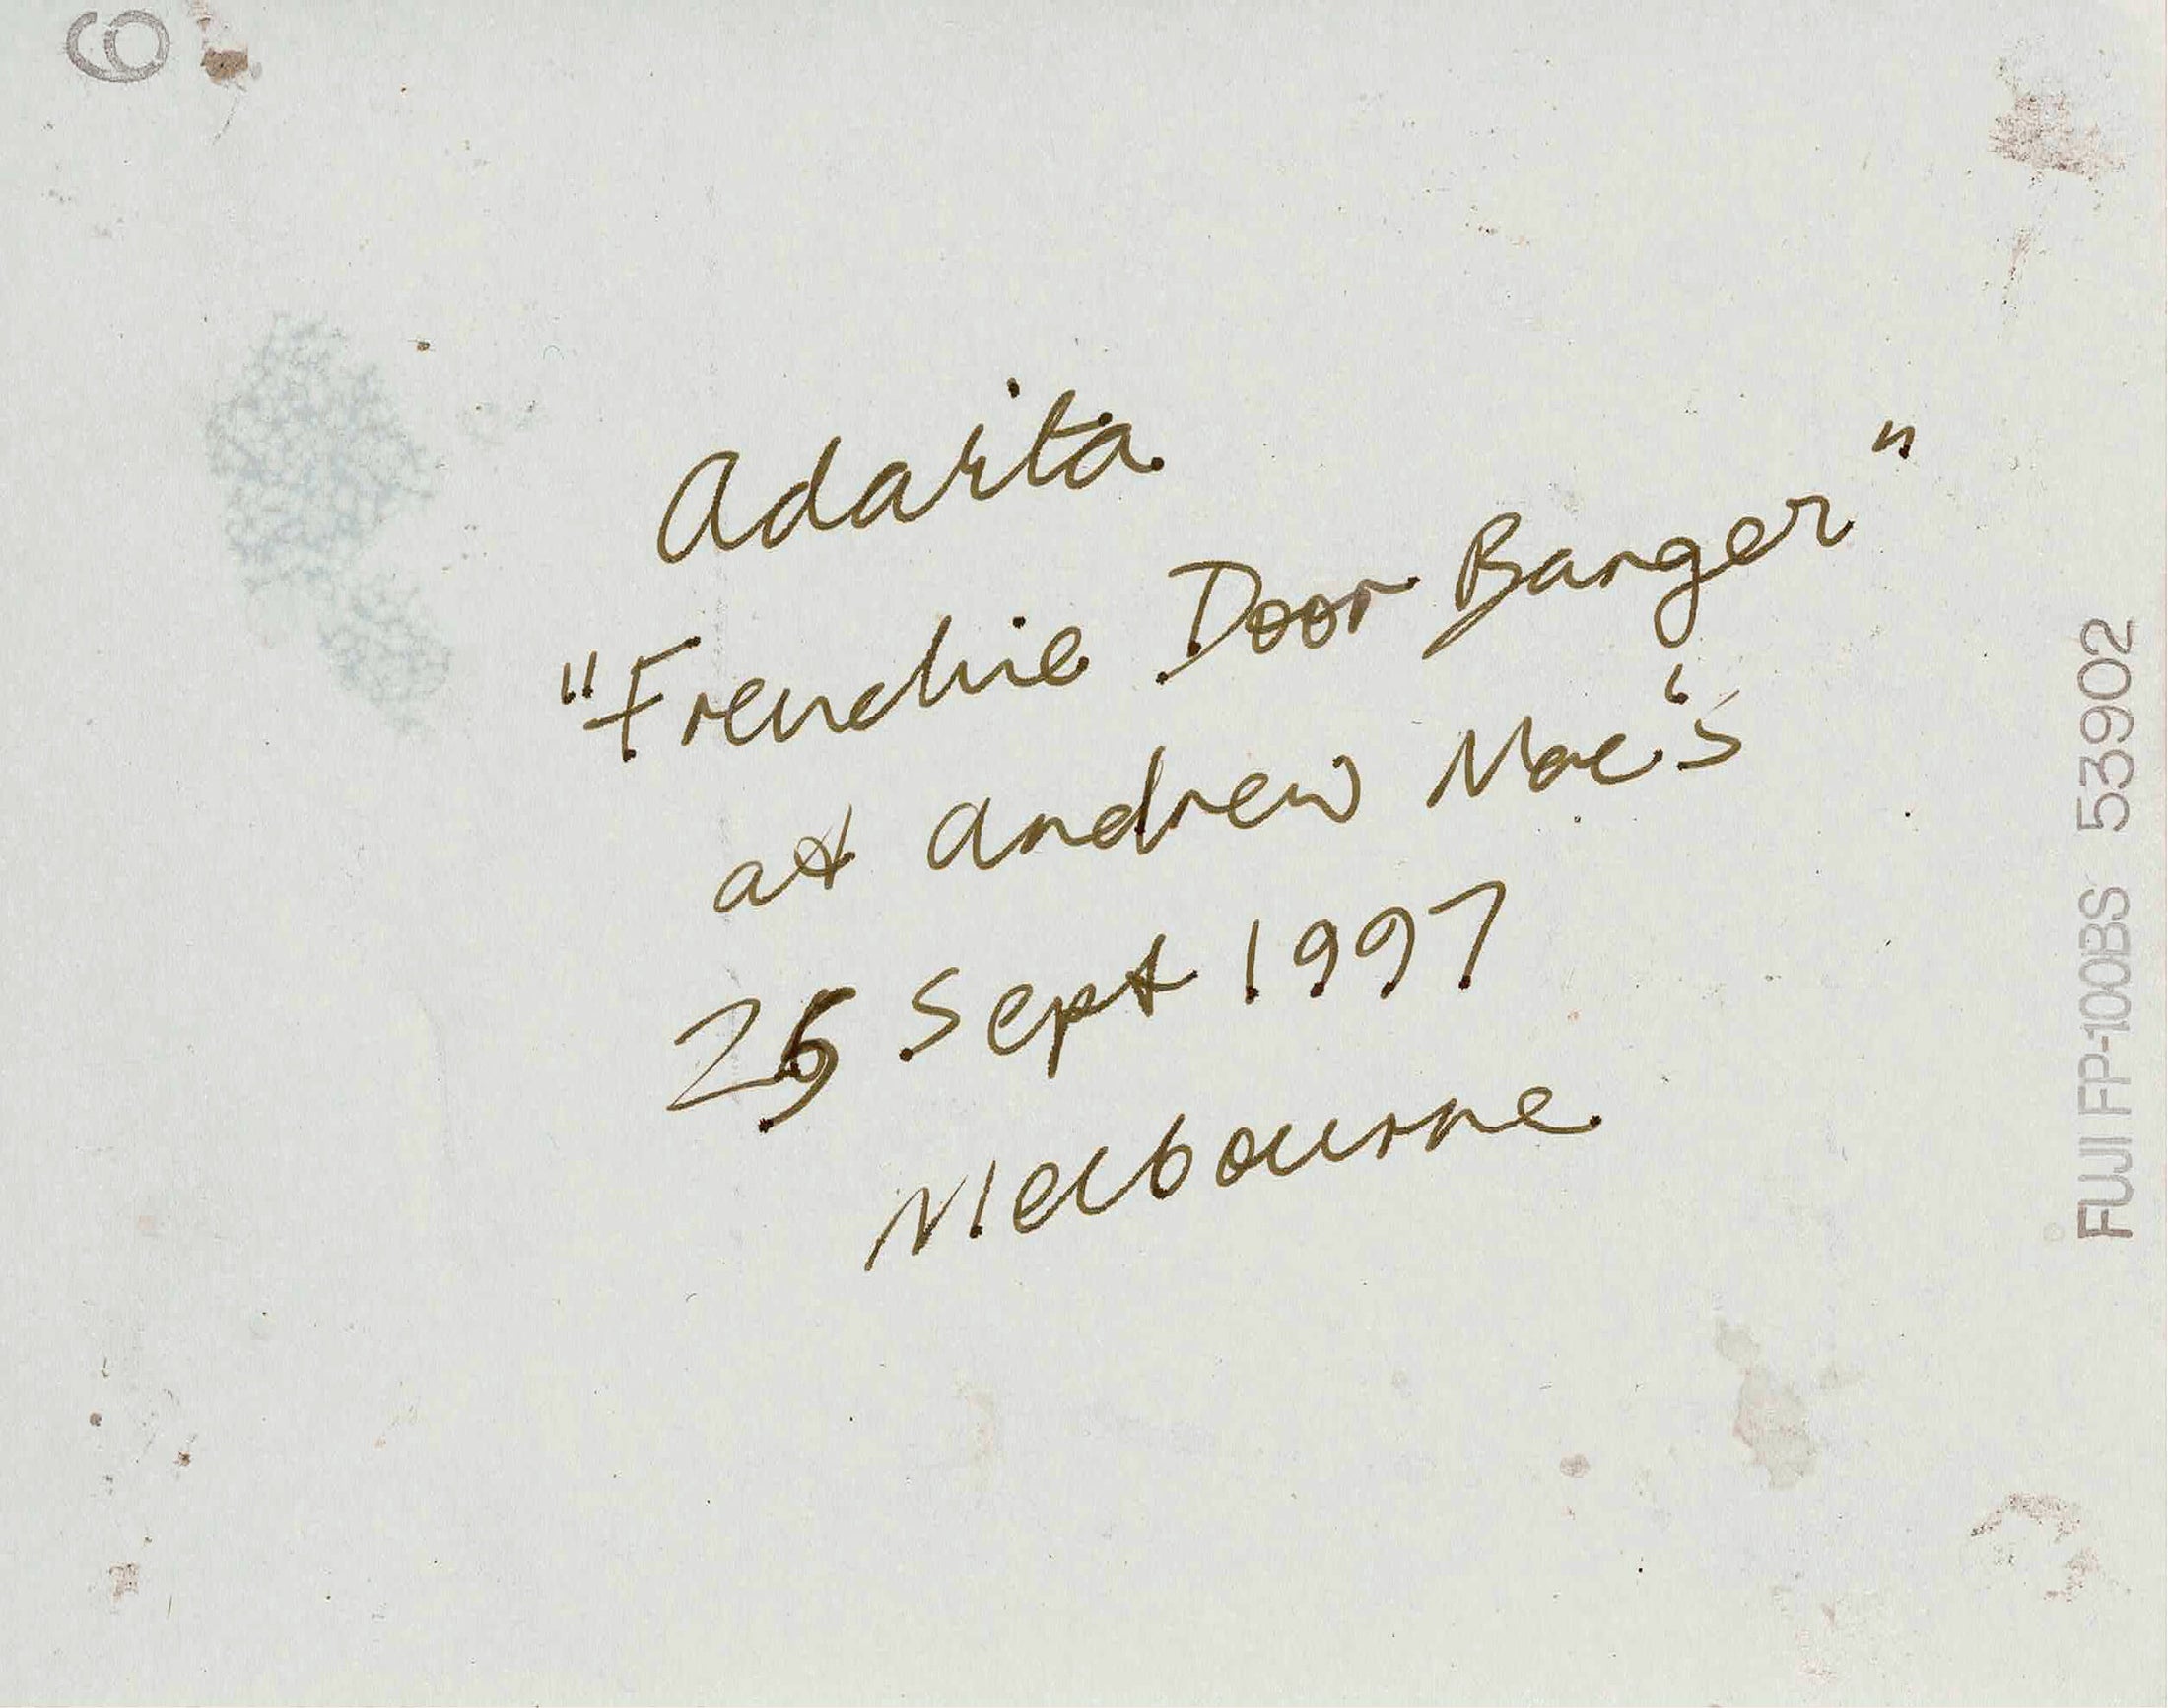 6
Adarita
"Frenchie Door Banger"
at Andrew Mac's
Sept 1997
Melbourne
FUJI FP-100BS 53902